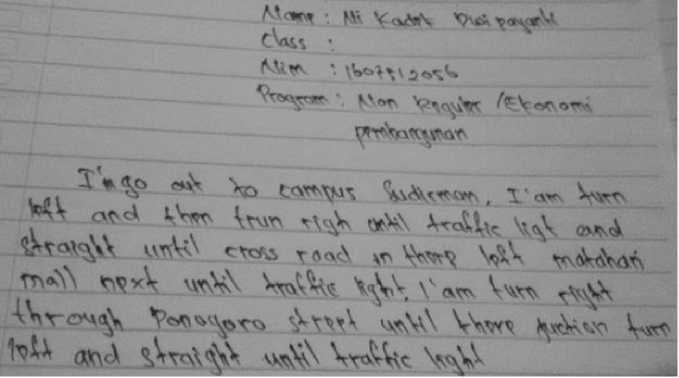 Name : Ni Kadek Dwi payanti
Class :
Nim : 1607512056
Program : Non Reguler /Ekonomi
pembangunan
I'm go out to campus Sudirman, I'am turn
left and then trun righ until traffic ligt and
straight until cross road in there left matahari
mall next until traffic light, I'am turn right
through Ponogoro street until there juction turn
left and straight until traffic light